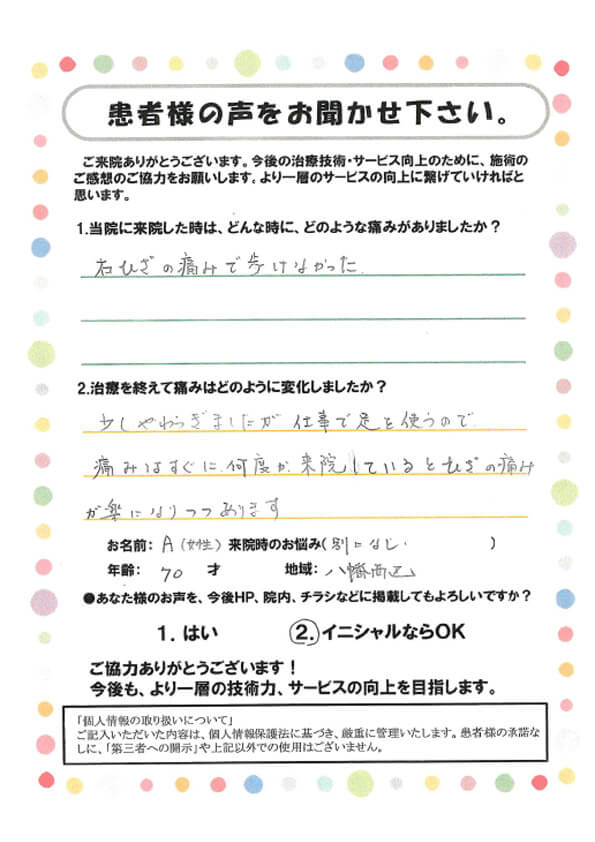 患者様の声をお聞かせ下さい。
ご来院ありがとうございます。今後の治療技術・サービス向上のために、施術の
ご感想のご協力をお願いします。より一層のサービスの向上に繋げていければと
思います。
1.当院に来院した時は、どんな時に、どのような痛みがありましたか？
右ひざの痛みで歩けなかった
2.治療を終えて痛みはどのように変化しましたか？
少しやわらぎましたが 仕事で足を使うので
痛みはすぐに.何度か.来院しているとひざの痛み
が楽になりつつあります
お名前： A（女性） 来院時のお悩み（ 別になし. ）
年齢： 70 才 地域： 八幡西区
●あなた様のお声を、今後HP、院内、チラシなどに掲載してもよろしいですか？
1. はい 2. イニシャルならOK
ご協力ありがとうございます！
今後も、より一層の技術力、サービスの向上を目指します。
「個人情報の取り扱いについて」
ご記入いただいた内容は、個人情報保護法に基づき、厳重に管理いたします。患者様の承諾な
しに、「第三者への開示」や上記以外での使用はございません。